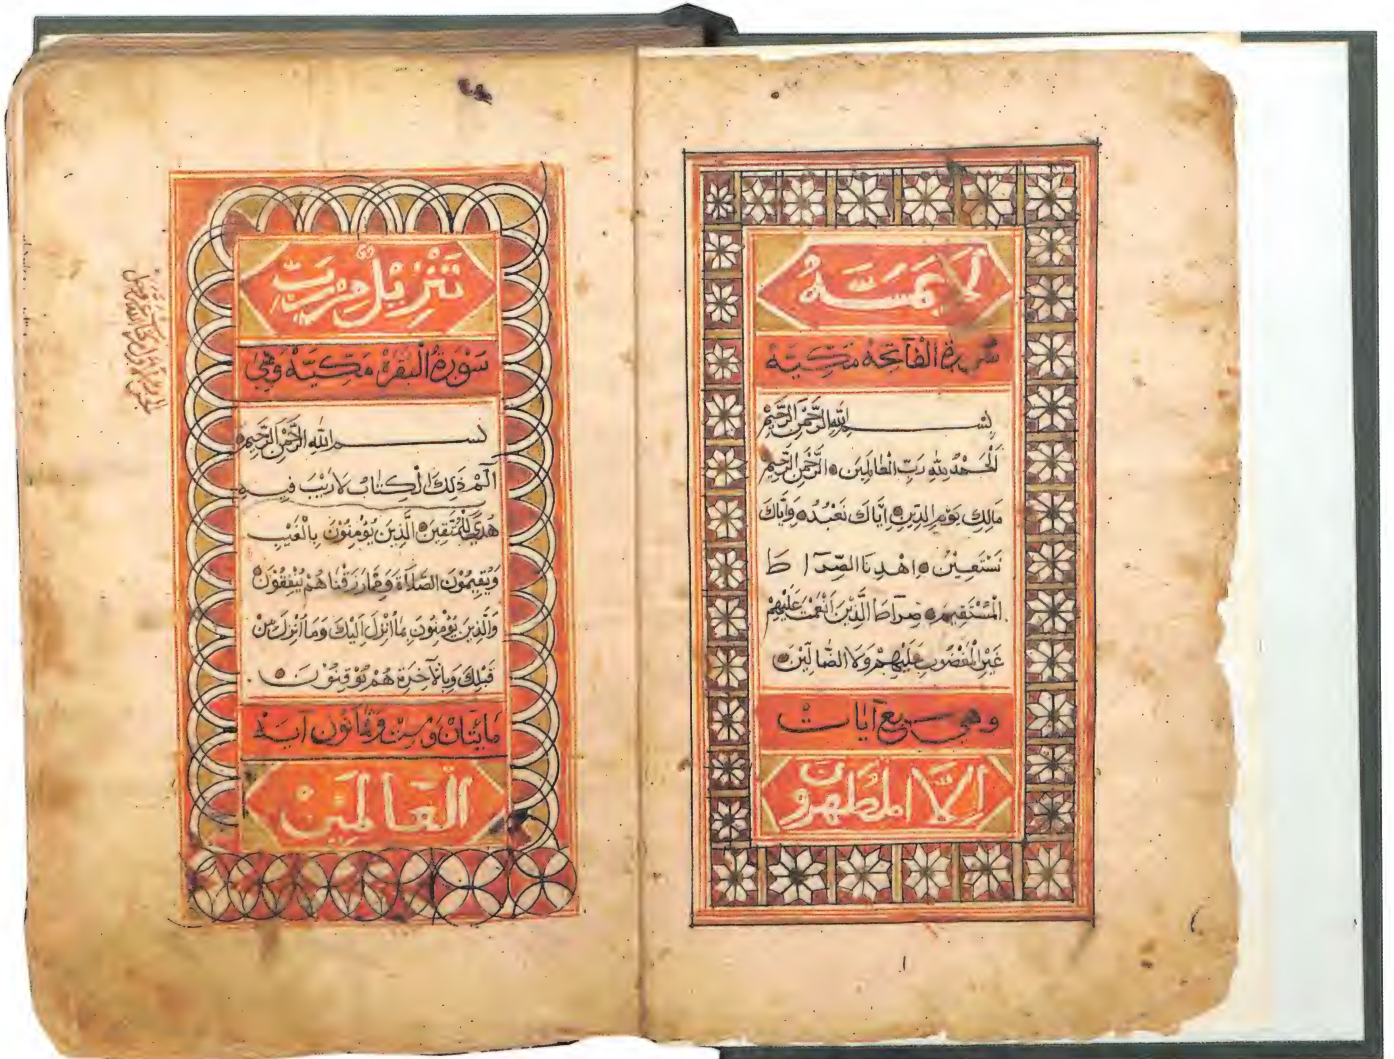 لَا يَمَسُّهُ
سورة الفَاتِحَة مَكِّيَّة
بسم الله الرَّحْمٰنِ الرَّحِيْمِ
اَلْحَمْدُ لِلّٰهِ رَبِّ الْعٰالَمِيَن الرَّحْمٰنِ الرَّحِيمِ
مَالِكِ يَوْمِ الدِّيْنِ اِيَّاكَ نَعْبُدُ وَاِيَّاكَ
نَسْتَعِيْنُ اِهْدِنَا الصِّرَاطَ
الْمُسْتَقِيْمَ صِرَاطَ الَّذِيْنَ اَنْعَمْتَ عَلَيْهِمْ
غَيْرِ الْمَغْضُوبِ عَلَيْهِمْ وَلَا الضَّالِّيْنَ
وهي سبع آيات
اِلَّا الْمُطَهَّرُونَ
تَنْزِيْلٌ مِنْ رَبِّ
سُوْرَةُ الْبَقَرَة مَكِّيَّة وَهِيَ
بسم الله الرَّحْمٰنِ الرَّحِيْمِ
الٓمٓ ذٰلِكَ الْكِتَابُ لَا رَيْبَ فِيهِ
هُدًى لِلْمُتَّقِينَ الَّذِيْنَ يُؤْمِنُوْنَ بِالْغَيْبِ
وَيُقِيْمُونَ الصَّلَاةَ وَمِمَّا رَزَقْنَاهُمْ يُنْفِقُوْنَ
وَالَّذِينَ يُؤْمِنُونَ بِمَا اُنْزِلَ اِلَيْكَ وَمَا اُنْزِلَ مِنْ
قَبْلِكَ وَبِالْآخِرَةِ هُمْ يُوْقِنُوْنَ
مَائتَانْ وَسِتْ وَثمَانُون آيَة
الْعَالَمِيْنْ
١